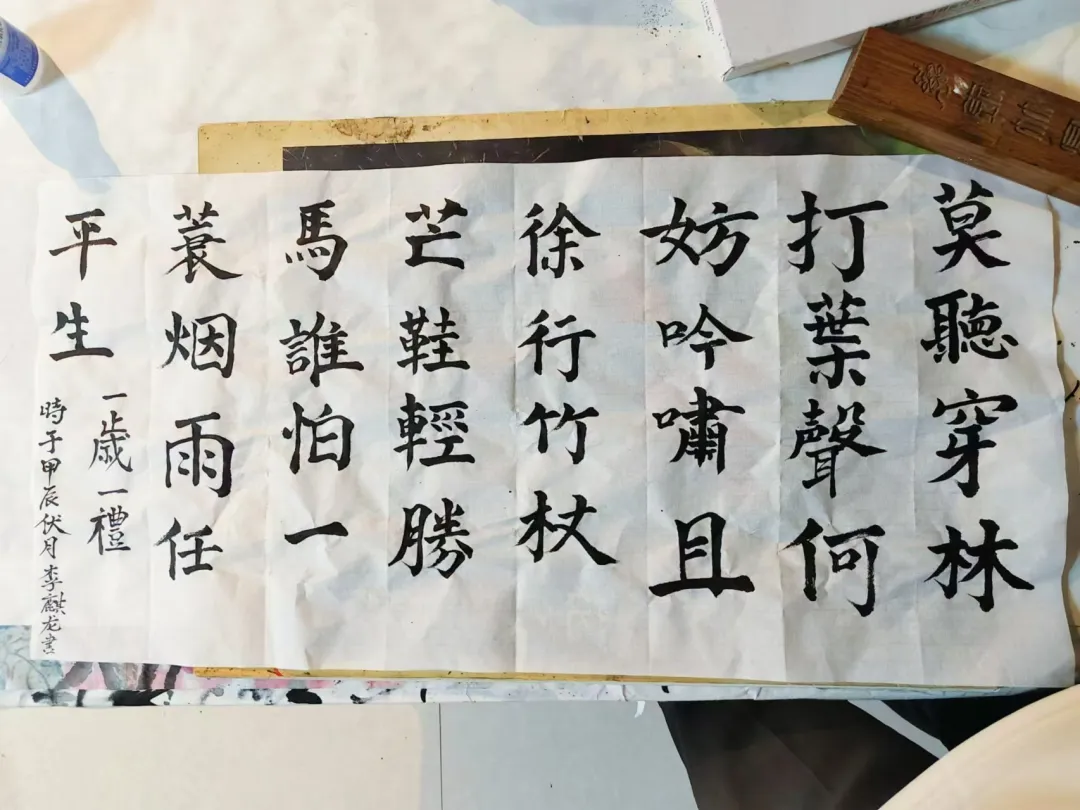 莫聽穿林
打葉聲何
妨吟嘯且
徐行竹杖
芒鞋輕勝
馬誰怕一
蓑烟雨任
平生
一歲一禮
時于甲辰伏月李麒龙書